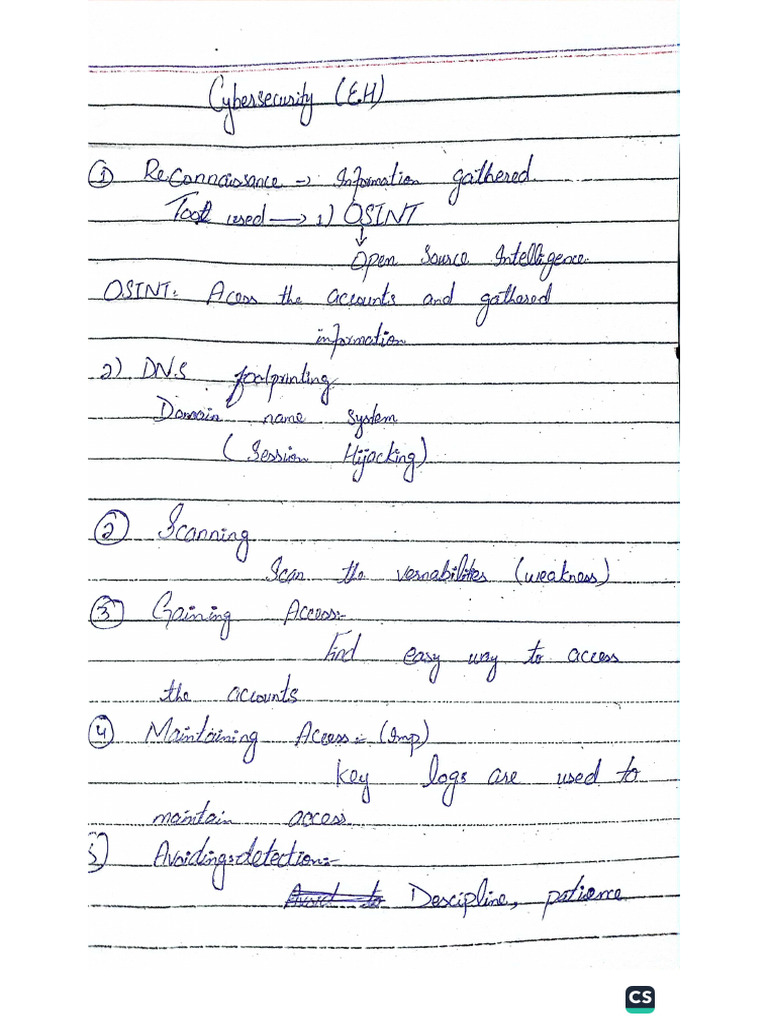 Cybersecurity (E.H)
① Reconnaissance → Information gathered.
Tool used → 1) OSINT
↓
Open Source Intelligence.
OSINT: Acess the accounts and gathered
information
2) DNS footprinting
Domain name system
(Session Hijacking)
② Scanning
Scan the vernabilites (weakness)
③ Gaining Access:-
Find easy way to access
the accounts
④ Maintaining Access:- (Imp)
Key logs are used to
maintain access
5) Avoiding detection:-
Descipline, patience
CS